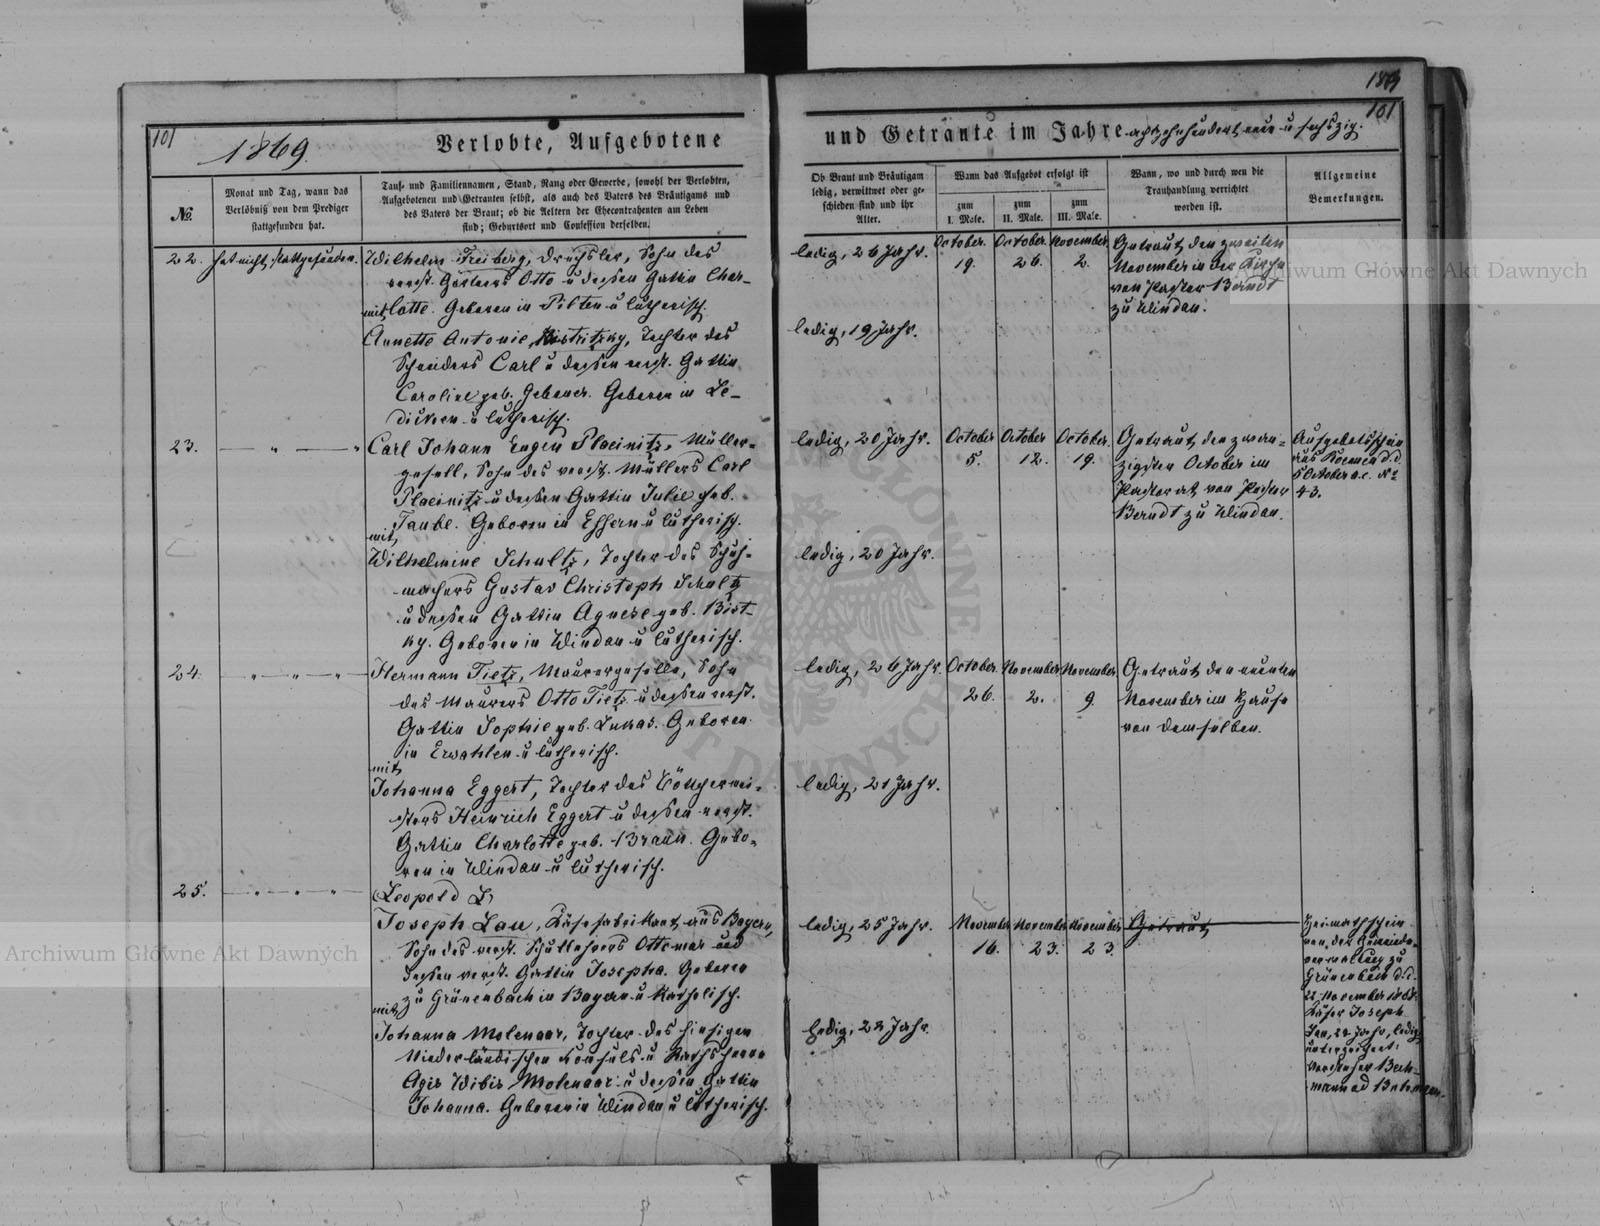 1869
101
1869.
Verlobte, Aufgebotene
№.
Monat und Tag, wann das
Verlöbniß von dem Prediger
stattgefunden hat.
Tauf- und Familiennamen, Stand, Rang oder Gewerbe, sowohl der Verlobten,
Aufgebotenen und Getrauten selbst, als auch des Vaters des Bräutigams und
des Vaters der Braut; ob die Aeltern der Ehecontrahenten am Leben
sind; Geburtsort und Confession derselben.
22. hat nicht stattgefunden.
Wilhelm Freiberg, Drechsler, Sohn des
verst. Gärtners Otto u dessen Gattin Char-
lotte. Geboren in Pilten u lutherisch.
mit
Annette Antonie, Tochter des
Schneiders Carl u dessen verst. Gattin
Caroline geb. Gebauer. Geboren in
u lutherisch.
23.
Carl Johann Eugen Placinitz, Müller-
gesell, Sohn des verst. Müllers Carl
Placinitz u dessen Gattin Julie geb.
Taube. Geboren in Essern u lutherisch.
mit
Wilhelmine Schultz, Tochter des Schuh-
machers Gustav Christoph Schultz
u dessen Gattin Agnese geb. Bist-
ky. Geboren in Windau u lutherisch.
24.
Hermann Tietz, Maurergeselle, Sohn
des Maurers Otto Tietz u dessen verst.
Gattin Sophie geb. Lukas. Geboren
in Erwahlen u lutherisch.
mit
Johanna Eggert, Tochter des Böttchermei-
sters Heinrich Eggert u dessen verst.
Gattin Charlotte geb. Braun. Gebo-
ren in Windau u lutherisch.
25.
Leopold L
Joseph Lau, Käsefabrikant aus Bayern,
Sohn des verst. Schullehrers Ottomar und
dessen verst. Gattin Josepha. Geboren
zu Grünenbach in Bayern u katholisch.
mit
Johanna Molenaar, Tochter des hiesigen
Niederländischen Konsuls u Rathsherrn
Agis Wibis Molenaar u dessen Gattin
Johanna. Geboren in Windau u lutherisch.
101
und Getraute im Jahre achtzehnhundert neun u sechszig.
Ob Braut und Bräutigam
ledig, verwittwet oder ge-
schieden sind und ihr
Alter.
Wann das Aufgebot erfolgt ist
zum
I. Male.
zum
II. Male.
zum
III. Male.
Wann, wo und durch wen die
Trauhandlung verrichtet
worden ist.
Allgemeine
Bemerkungen.
ledig, 26 Jahr. October. October. November.
19. 26. 2.
Getraut den zweiten
November in der Kirche
von Pastor Berndt
zu Windau.
ledig, 19 Jahr.
ledig, 20 Jahr. October October October.
5. 12. 19.
Getraut den zwan-
zigsten October im
Pastorat von Pastor
Berndt zu Windau.
Aufgebotsschein
aus d. d.
5 October a. c. №
43.
ledig, 20 Jahr.
ledig, 26 Jahr. October. November November.
26. 2. 9.
Getraut den neunten
November im Hause
von demselben.
ledig, 21 Jahr.
ledig, 25 Jahr. November November November
16. 23. 23.
Getraut
Heimathschein
von der Gemeinde-
verwaltung zu
Grünenbach d. d.
22 November 1868.
Käser Joseph
Lau, 24 Jahr, ledig
unterzeichnet:
Vorsteher Bach-
mann
ledig, 22 Jahr.
Archiwum Główne Akt Dawnych
Archiwum Główne Akt Dawnych